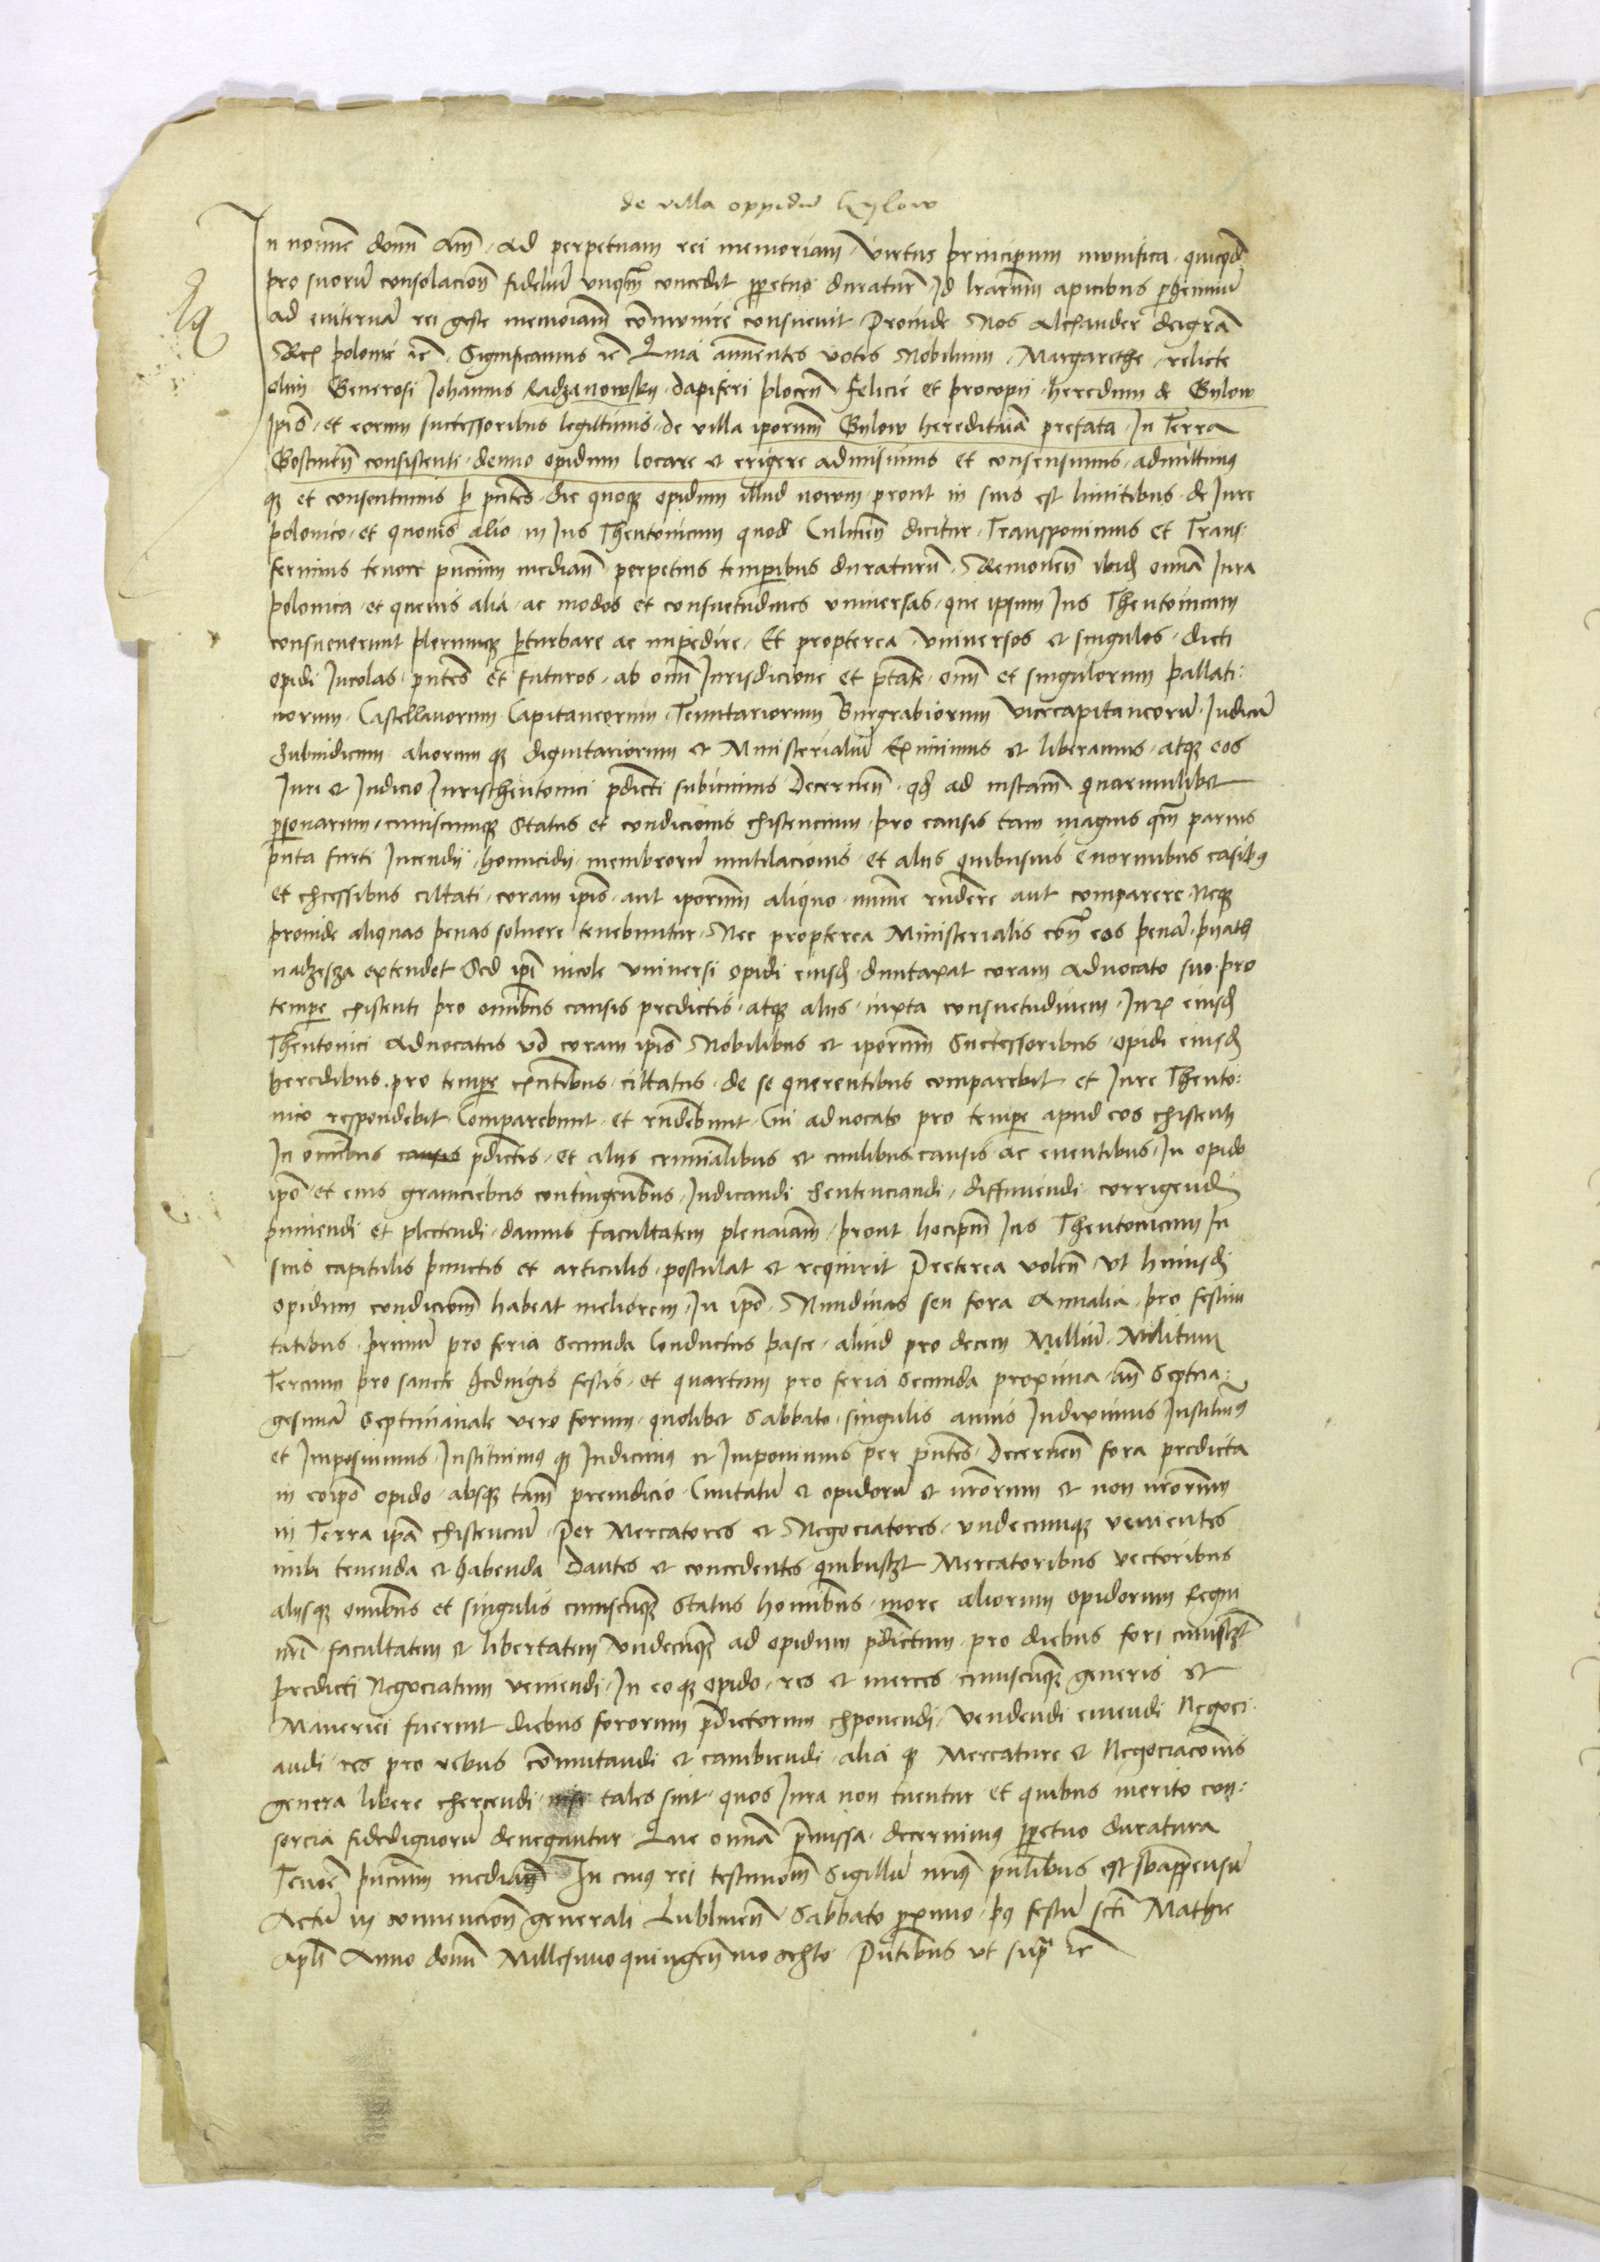 de villa oppidu Gylow
In nomine domi Am. Ad perpetuam rei memoriam. Virtus principum munifica. quicqd
pro suoru consolacion fideliu unqm concedit ppetuo duratur Id lrarum apicibus phenniu
ad eviternã rei geste memoriam communire consuevit Proinde Nos Alexander dei gra
Rex polonie rc. Significamus rc Quia annuentes votis Nobilium. Margarethe. relicte
olim Generosi Johannis Radzanowsky. dapiferi plocen. Felicie et procopii. heredum de Gylow
Ipis. et eorum successoribus legittimis. de villa iporum Gylow hereditaia prefata. In Terra
Gostinen consistenti. denuo opidum locare et erigere admisimus et consensimus. admittimus
q3 et consentimus p pntes. Sic quoq3 opidum illud novum prout in suis est limitibus. de Jure
polonico. et quovis alio in Jus Theutonicum quod Culmen dicitur. Transponimus et Trans-
ferimus tenore pncium median perpetuis temporibus duraturu. Removen ibid omnia Jura
polonica. et quevis alia. ac modos et consuetudines universas. que ipsum Jus Theutonicum
consueverunt plerumq3 pturbare ac impedire. Et propterea universos et singulos. dicti
opidi Incolas. pntes et futuros. ab omi Jurisdicione et ptate. omi et singulorum pallati-
norum. Castellanorum Capitaneorum. Tenutariorum Burgrabiorum Vicecapitaneoru. Judicu
Subiudicum aliorum q3 dignitariorum et Ministerialiu Eximimus et liberamus. atq3 eos
Juri et Judicio Juris theutonici pdicti subicimus Decernen. qd ad instam quarumlibet
psonarum. cuiuscumq3 Status et condicionis existencium. pro causis tam magnis qm parvis
puta furti Incendij. homicidij. membroru mutilacionis. et aliis quibusvis enormibus casibus
et excessibus cittati. coram ipis. aut iporum aliquo. minime rndere aut comparere Neq3
proinde aliquas penas solvere tenebuntur. Nec propterea Ministerialis cont eos pena. pyath
nadzesza extendet Sed ipi incole universi opidi eiusd duntaxat coram Advocato suo. pro
tempe existenti pro omibus causis predictis. atq3 aliis. iuxta consuetudinem. Jur eiusd
Theutonici Advocatus vo coram ipis Nobilibus et iporum Successoribus. opidi eiusd
heredibus. pro tempe extitibus. cittatus. de se querentibus comparebit et Jure Theuto-
nico respondebit Comparebunt. et rndebunt. Cui advocato pro tempe apud eos existenti
In omibus causis pdictis. et aliis criminalibus et civilibus causis ac eventibus. In opido
ipo. et eius graniciebus contingentibus. Judicandi Sentenciandi. diffiniendi corrigendi
puniendi et plectendi. damus facultatem plenaiam. prout hoc ipm Jus Theutonicum In
suis capitulis punctis et articulis. postulat et requirit Preterea volen. ut huiusd
opidum condicionem habeat meliorem. In ipo. Nundinas seu fora Annalia. pro festivi
tatibus. primu pro feria Secunda Conductus pasce. aliud pro decem Milliu. Militum
Tercium pro sancte Hedvigis festis. et quartum pro feria Secunda proxima. an Septua-
gesima Septimanale vero forum. quolibet Sabbato. singulis annis Indiximus Instituimus
et Imposuimus. Instituimus q3 Indicimus et Imponimus per pntes. Decernen fora predicta
in eo ipo opido. absq3 tam preiudicio. Civitatu et opidoru et nrorum et non nrorum
in Terra ipa existenciu. Per Mercatores et Negociatores. undecumq3 venientes
inibi tenenda et habenda Dantes et concedentes quibuslibet Mercatoribus vectoribus
aliisq3 omibus et singulis cuiuscumq3 Status homibus. more aliorum opidorum Regni
nri facultatem et libertatem undecumq3 ad opidum pdictum. pro diebus fori cuiuslibet
predicti Negociatum veniendi. In eo q3 opido. res et merces cuiuscumq3 generis et
Maneriei fuerint diebus fororum pdictorum exponendi. Vendendi emendi Negoci-
andi. res pro rebus commutandi et cambiendi. alia q3 Mercature et Negociaconis
genera libere exercendi. nisi tales sint. quos Jura non tuentur et quibus merito con-
sorcia fidedignoru denegantur. Que omia pmissa. decernimus ppetuo duratura
Tenore pncium median In cuius rei testimom Sigillu nrum pntibus est sbappensu
Actu in convencion generali Lublinen. Sabbato proximo. ps festu scti Mathie
Apli Anno domi Millesimo quingen mo sexto Pntibus ut supra rc